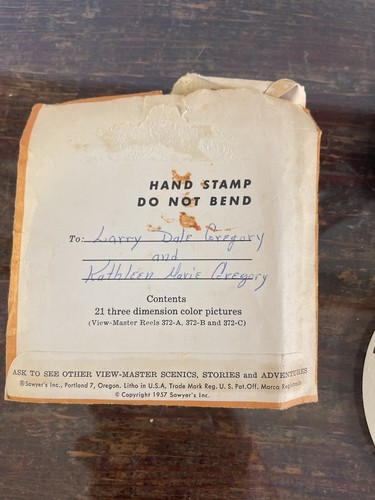 HAND STAMP
DO NOT BEND
To: Larry Dale Gregory
and
Kathleen Marie Gregory
Contents
21 three dimension color pictures
(View-Master Reels 372-A, 372-B and 372-C)
ASK TO SEE OTHER VIEW-MASTER SCENICS, STORIES and ADVENTURES
®Sawyer's Inc., Portland 7, Oregon. Litho in U.S.A. Trade Mark Reg. U. S. Pat. Off. Marca Registrada
© Copyright 1957 Sawyer's Inc.